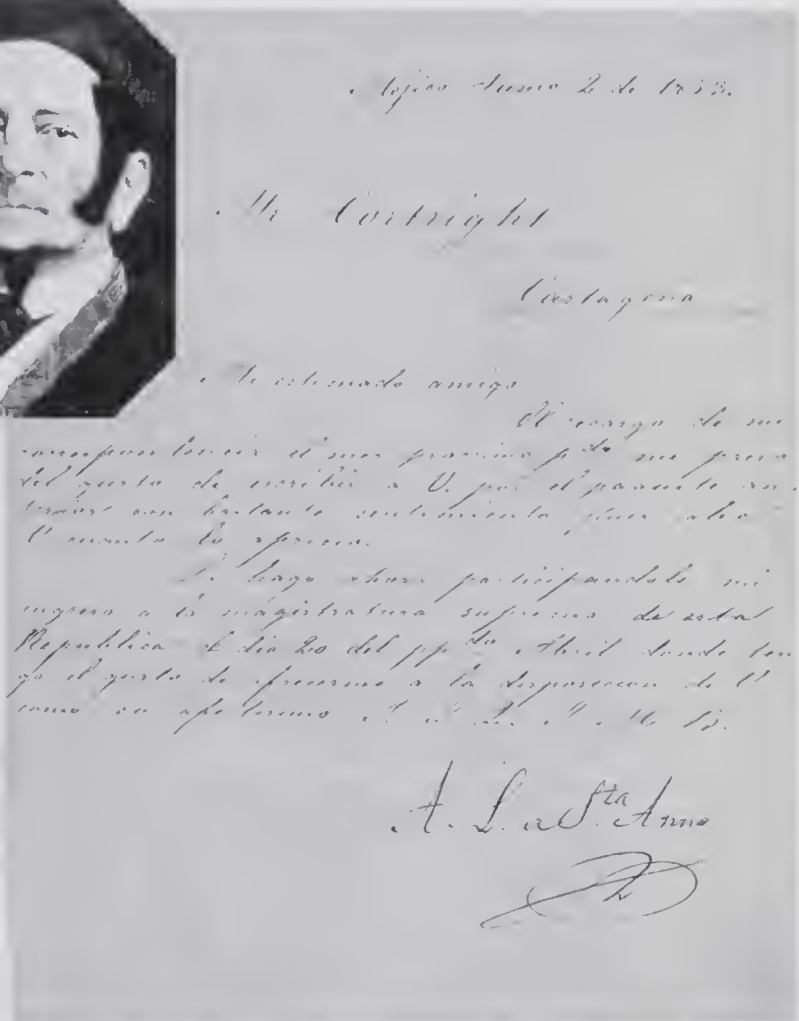 Mejico Junio 2 de 1853.
Mr Cortright
Cartagena
Mi estimado amigo
El recargo de mi
correspondencia el mes proximo pdo me privó
del gusto de escribir a V. por el paquete an
terior con bastante sentimiento pues sabe
V cuanto lo aprecio.
Lo hago ahora participandole mi
ingreso a la magistratura suprema de esta
Republica el dia 20 del ppdo Abril donde ten
go el gusto de ofrecerme a la disposicion de V
como su afectisimo
A. L. de Sta Anna